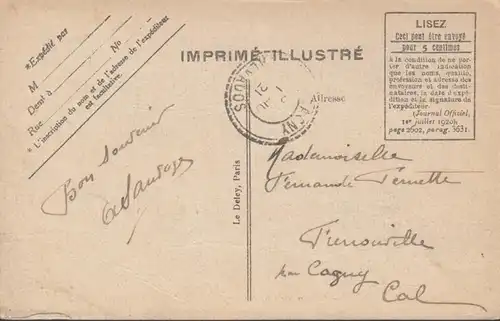 * Expédié par
M
No
Demt à
Rue
* L'inscription du nom et de l'adresse de l'expéditeur
est facultative.
IMPRIMÉ ILLUSTRÉ
LISEZ
Ceci peut être envoyé
pour 5 centimes
à la condition de ne por-
ter d'autre indication
que les noms, qualité,
profession et adresse des
envoyeurs et des desti-
nataires, la date d'expé-
dition et la signature de
l'expéditeur.
(Journal Officiel,
1er juillet 1920)
page 2602, parag. 3631.
CAGNY
CALVADOS
21
Adresse
Bon souvenir
Sauvage
Le Deley, Paris
Mademoiselle
Fernande
Frenouville
par Cagny
Cal